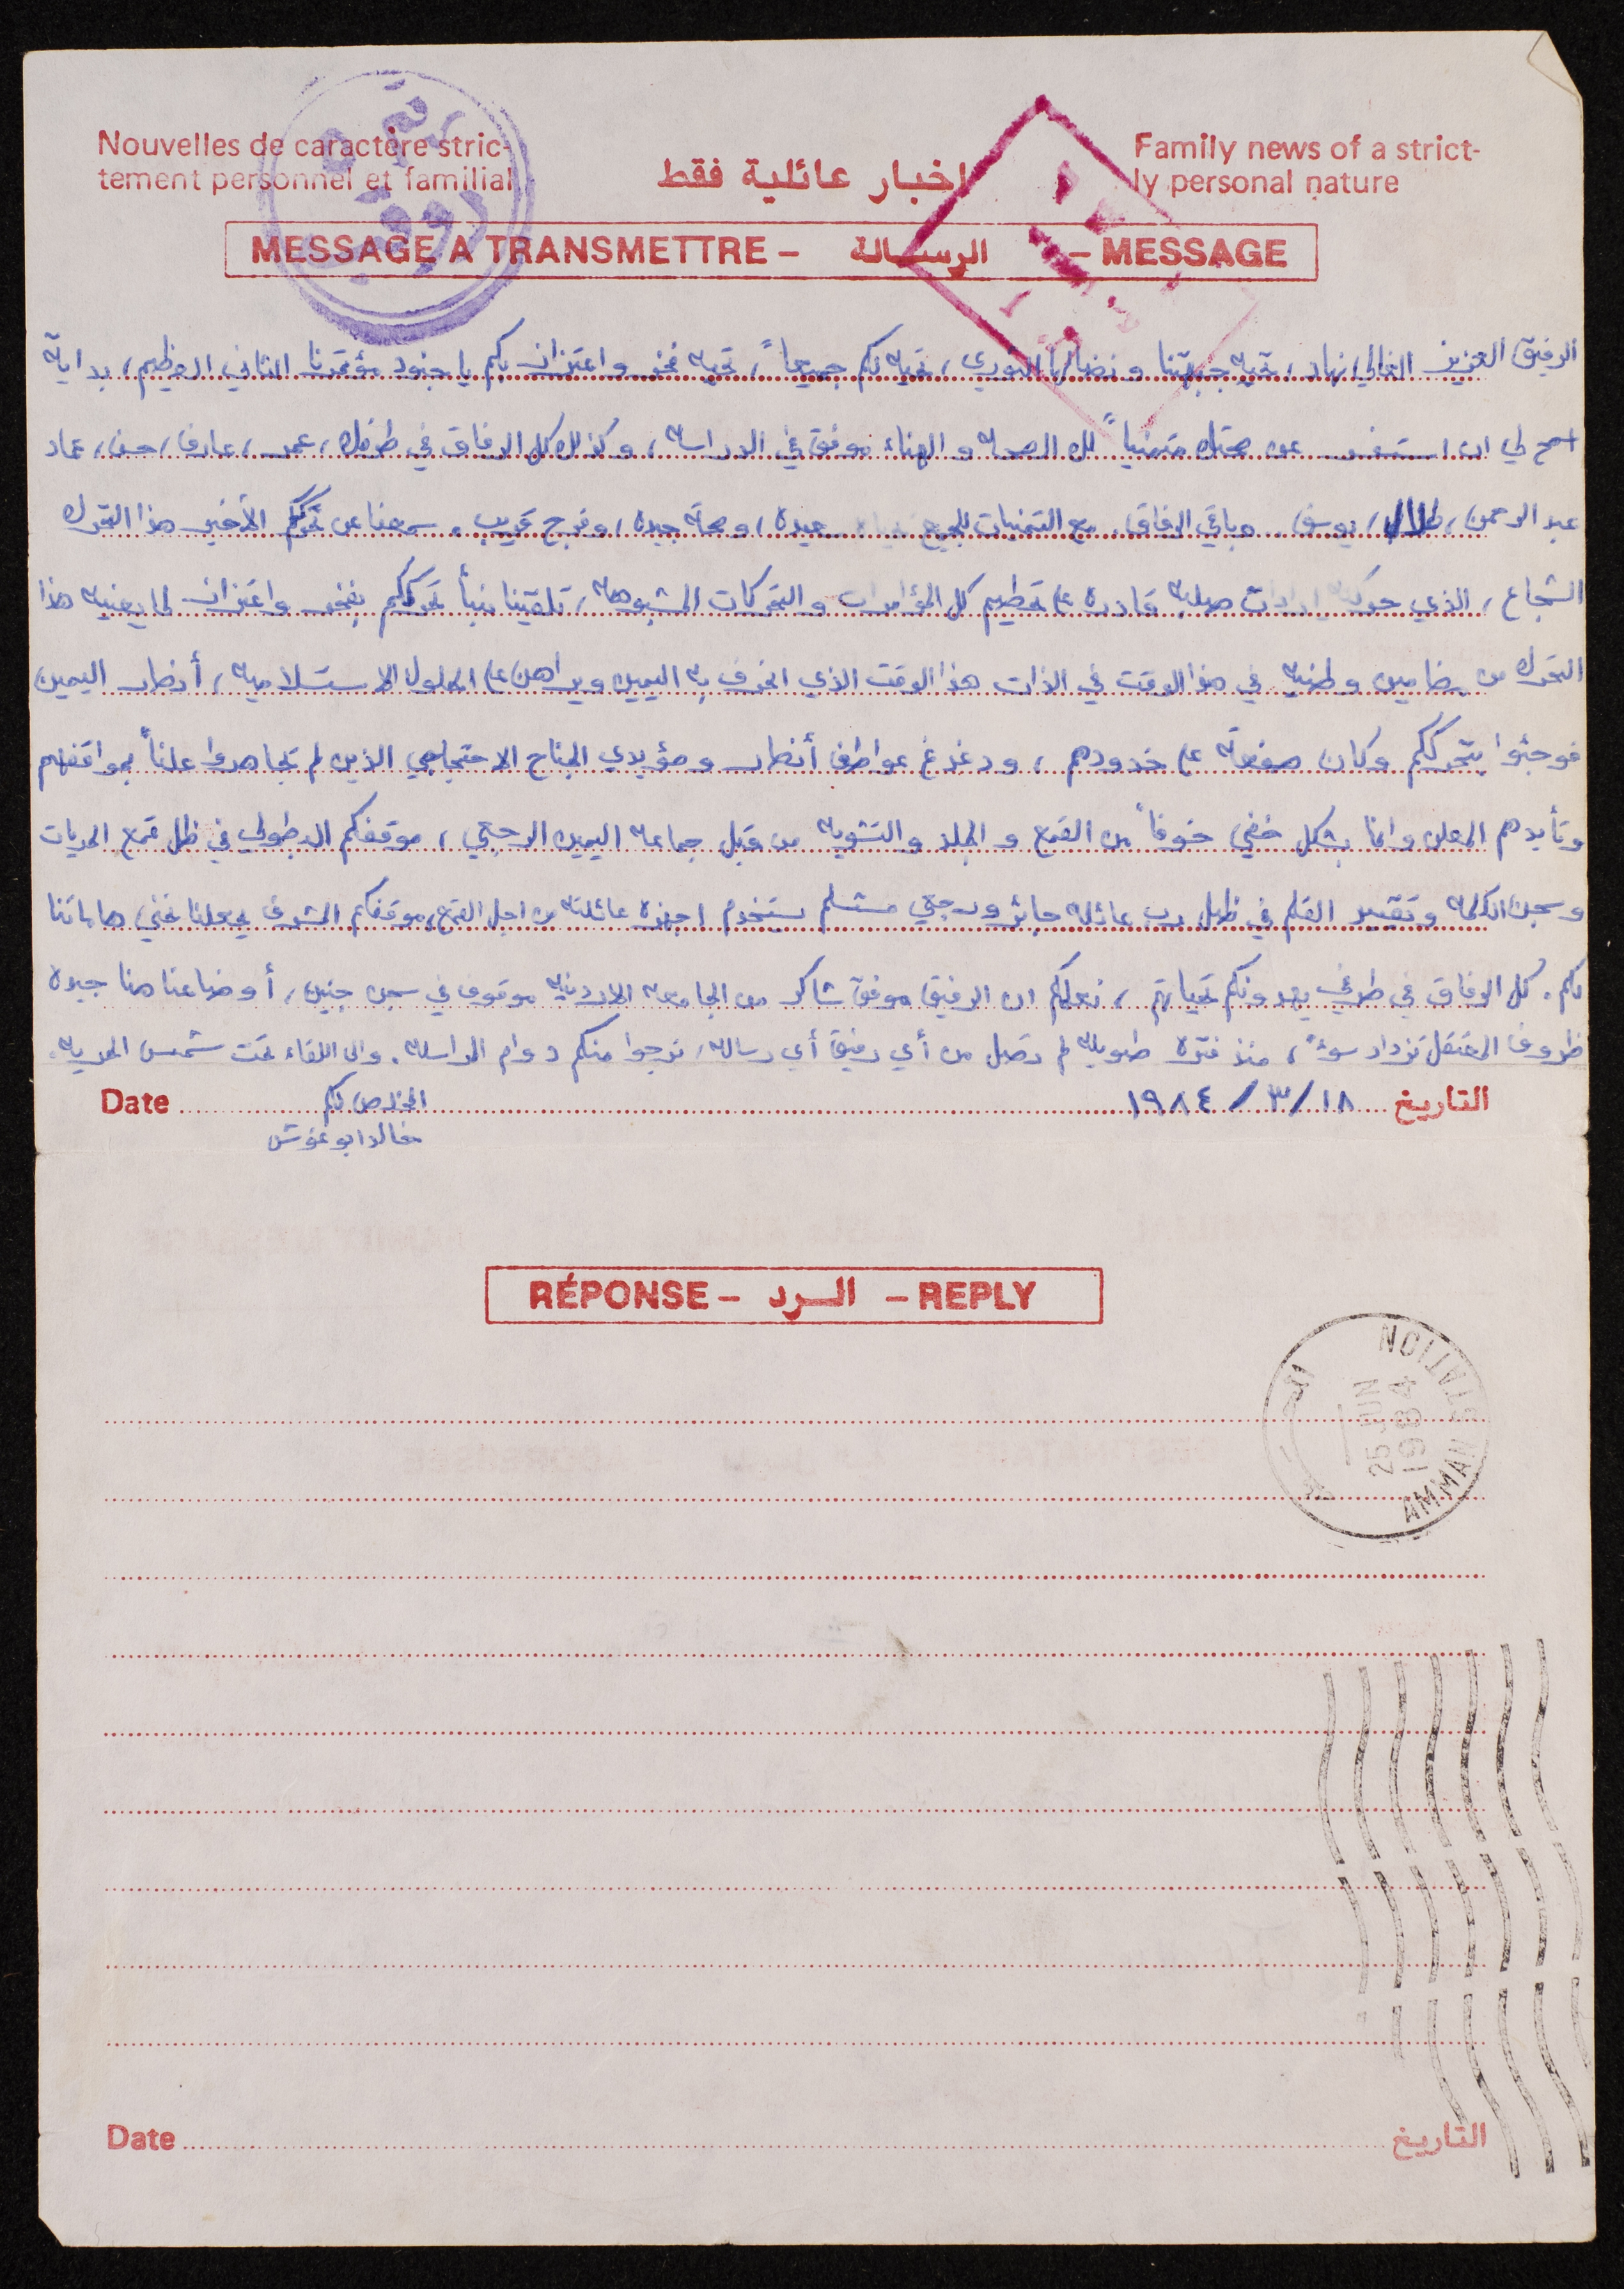 Nouvelles de caractère stric-
tement personnel et familial
اخبار عائلية فقط
Family news of a strict-
ly personal nature
MESSAGE A TRANSMETTRE – الرسالة – MESSAGE
الرفيق العزيز الغالي نهاد، تحيه جبهتنا ونضالها الثوري، تحيه لكم جميعاً، تحيه فخر واعتزاز بكم يا جنود مؤتمرنا الثاني العظيم، بداية
اسمح لي ان استفسر عن صحتك متمنياً لك الصحه والهناء موفق في الدراسه، وكذلك كل الرفاق في طرفك، عمر، عارف، حسن، عماد
عبد الرحمن، طلال، يوسف.. وباقي الرفاق. مع التمنيات للجميع بحياه سعيدة، وصحة جيدة، وفرج قريب. سمعنا عن تحرككم الأخير هذا التحرك
الشجاع، الذي حركته ارادات صلبه قادره على تحطيم كل المؤامرات والتحركات المشبوهه، تلقينا نبأ تحرككم بفخر واعتزاز لما يعنيه هذا
التحرك من مضامين وطنيه في هذا الوقت في الذات هذا الوقت الذي انحرف به اليمين ويراهن على الحلول الاستسلاميه، أنصار اليمين
فوجئوا بتحرككم وكان صفعة على خدودهم، ودغدغ عواطف أنصار ومؤيدي الجناح الاحتجاجي الذين لم يجاهروا علناً بمواقفهم
وتأيدهم المعلن وانما بشكل خفي خوفاً من القمع والجلد والتشويه من قبل جماعه اليمين الرجعي، موقفكم البطولي في ظل قمع الحريات
وسجن الكلمه وتقييد القلم في ظل رب عائله جائر ورجعي متسلم يستخدم اجهزة عائلته من اجل القمع، موقفكم المشرف يجعلنا نحني هاماتنا
لكم. كل الرفاق في طرفي يهدونكم تحياتهم، نعلمكم ان الرفيق موفق شاكر من الجامعه الاردنيه موقوف في سجن جنين، أوضاعنا هنا جيدة
ظروف المعتقل تزداد سوءً، منذ فترة طويله لم تصل من أي رفيق أي رساله، نرجوا منكم دوام المراسله. والى اللقاء تحت شمس الحريه.
التاريخ ١٨/٣/١٩٨٤ المخلص لكم Date
خالد ابو غوش
RÉPONSE – الرد – REPLY
AMMAN STATION
25 JUN
1984
التاريخ Date